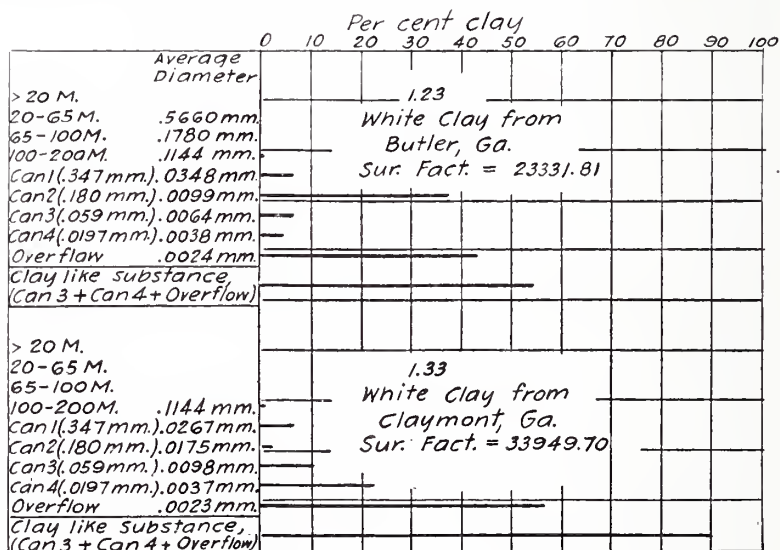 Per cent clay
0 10 20 30 40 50 60 70 80 90 100
Average
Diameter
> 20 M.
20-65 M. .5660 mm.
65-100 M. .1780 mm.
100-200 M. .1144 mm.
Can 1 (.347 mm.) .0348 mm.
Can 2 (.180 mm.) .0099 mm.
Can 3 (.059 mm.) .0064 mm.
Can 4 (.0197 mm.) .0038 mm.
Overflow .0024 mm.
Clay like substance,
(Can 3 + Can 4 + Overflow)
1.23
White Clay from
Butler, Ga.
Sur. Fact. = 23331.81
> 20 M.
20-65 M.
65-100 M.
100-200 M. .1144 mm.
Can 1 (.347 mm.) .0267 mm.
Can 2 (.180 mm.) .0175 mm.
Can 3 (.059 mm.) .0098 mm.
Can 4 (.0197 mm.) .0037 mm.
Overflow .0023 mm.
Clay like Substance,
(Can 3 + Can 4 + Overflow)
1.33
White Clay from
Claymont, Ga.
Sur. Fact. = 33949.70